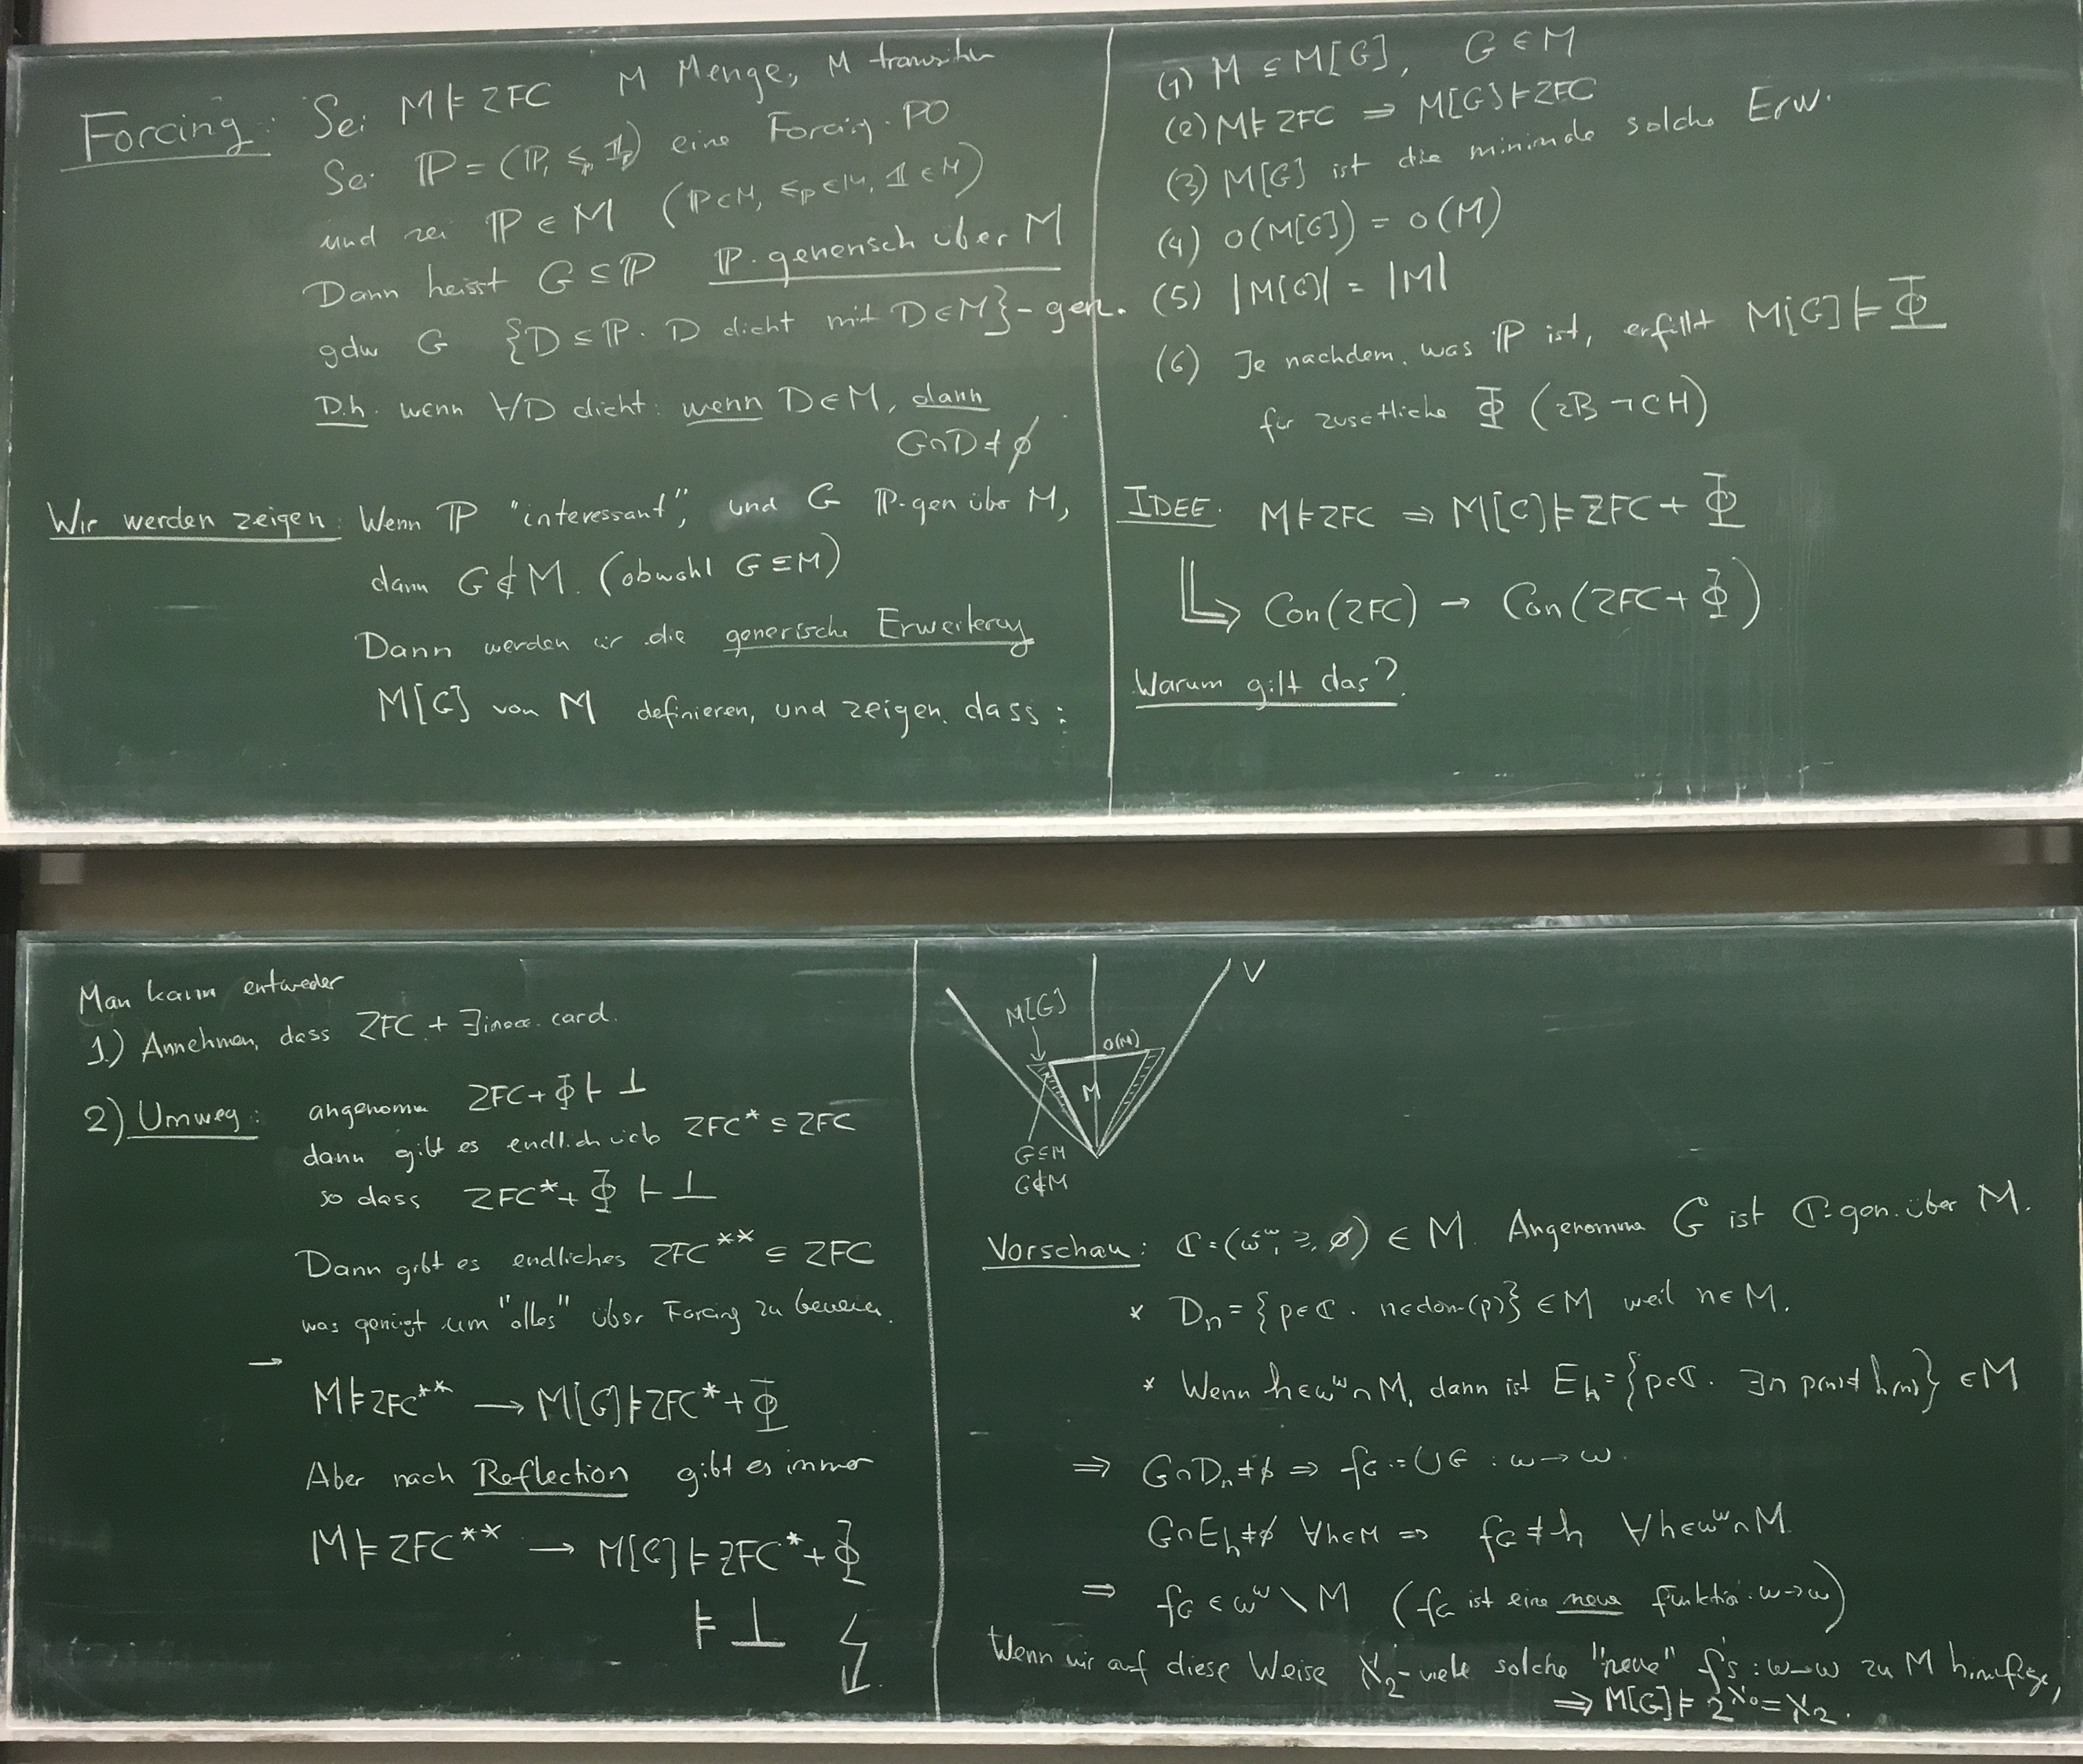 Forcing: Sei M ⊨ ZFC M Menge, M transitiv
Sei ℙ = (ℙ, ≤_ℙ, 𝟙_ℙ) eine Forcing-PO
und sei ℙ ∈ M (ℙ∈M, ≤_ℙ∈M, 𝟙∈M)
Dann heisst G ⊆ ℙ ℙ-generisch über M
gdw G {D ⊆ ℙ : D dicht mit D∈M}-gen.
D.h. wenn ∀D dicht: wenn D∈M, dann
G∩D ≠ ∅
Wir werden zeigen: Wenn ℙ "interessant", und G ℙ-gen über M,
dann G∉M. (obwohl G⊆M)
Dann werden wir die generische Erweiterung
M[G] von M definieren, und zeigen, dass:
(1) M ⊆ M[G], G ∈ M
(2) M⊨ZFC ⇒ M[G]⊨ZFC
(3) M[G] ist die minimale solche Erw.
(4) o(M[G]) = o(M)
(5) |M[G]| = |M|
(6) Je nachdem, was ℙ ist, erfüllt M[G] ⊨ Φ
für zusätliche Φ (zB ¬CH)
IDEE: M⊨ZFC ⇒ M[G]⊨ZFC + Φ
↳ Con(ZFC) → Con(ZFC + Φ)
Warum gilt das?
Man kann entweder
1) Annehmen, dass ZFC + ∃inacc. card.
2) Umweg: angenomm ZFC+Φ ⊢ ⊥
dann gibt es endlich viele ZFC* ⊆ ZFC
so dass ZFC*+Φ ⊢ ⊥
Dann gibt es endliches ZFC** ⊆ ZFC
was genügt um "alles" über Forcing zu beweisen.
→
M⊨ZFC** → M[G]⊨ZFC*+Φ
Aber nach Reflection gibt es immer
M⊨ZFC** → M[G]⊨ZFC*+Φ
⊨ ⊥ ↯
V
M[G]
o(M)
M
G⊆M
G∉M
Vorschau: ℂ=(ω^{<ω}, ⊇, ∅) ∈ M. Angenomme G ist ℂ-gen. über M.
* D_n = {p∈ℂ : n∈dom(p)} ∈M weil n∈M.
* Wenn h∈ω^ω∩M, dann ist E_h={p∈ℂ : ∃n p(n)≠h(n)} ∈M
⇒ G∩D_n≠∅ ⇒ f_G := ∪G : ω→ω.
G∩E_h≠∅ ∀h∈M ⇒ f_G ≠ h ∀h∈ω^ω∩M.
⇒ f_G ∈ ω^ω \ M (f_G ist eine neue Funktion: ω→ω)
Wenn wir auf diese Weise ℵ₂-viele solche "neue" f's : ω→ω zu M hinzufüge,
⇒ M[G]⊨ 2^{ℵ₀}=ℵ₂.